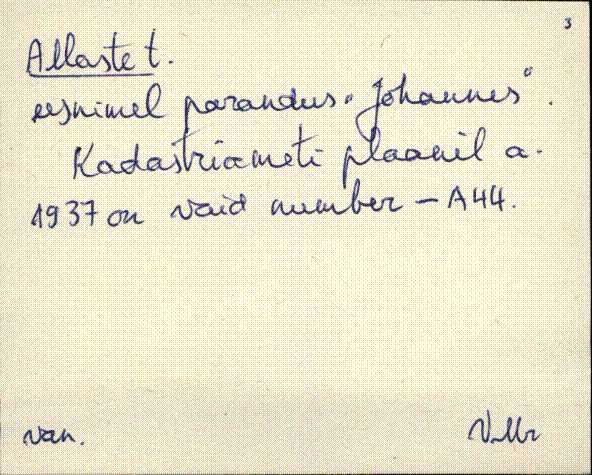 3
Allaste t.
eesnimel parandus "Johannes".
Kadastriameti plaanil a.
1937 on vaid number - A44.
van. VMr